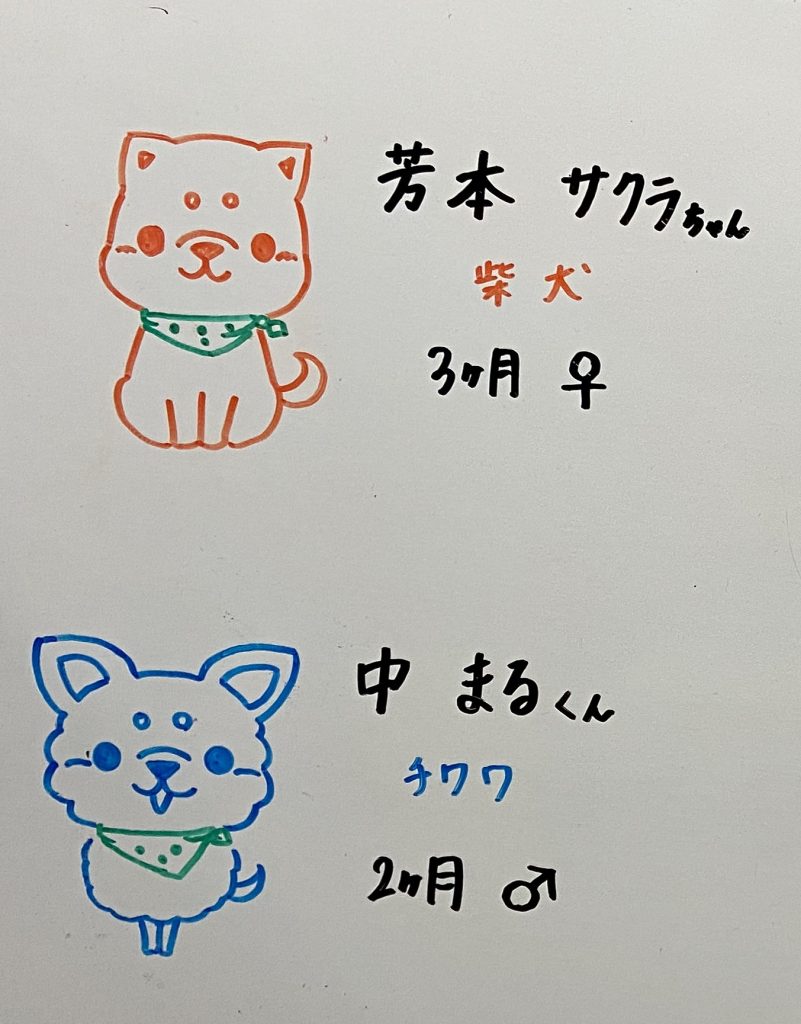 芳本 サクラちゃん
柴犬
3ヶ月 ♀
中 まるくん
チワワ
2ヶ月 ♂